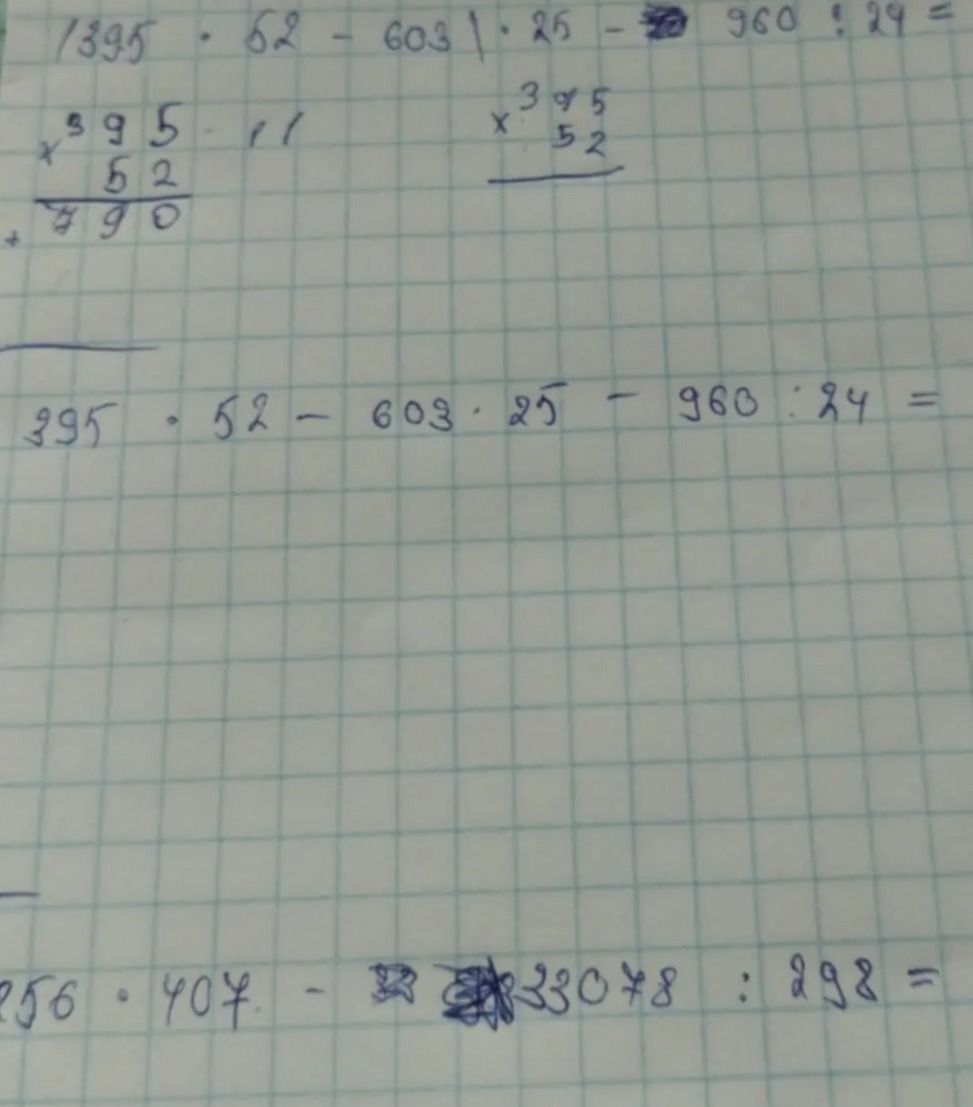 (395 · 52 - 603) · 25 - 960 : 24 =
×395 × 395
52 52
+ 790
395 · 52 - 603 · 25 - 960 : 24 =
256 · 407 - 33078 : 298 =